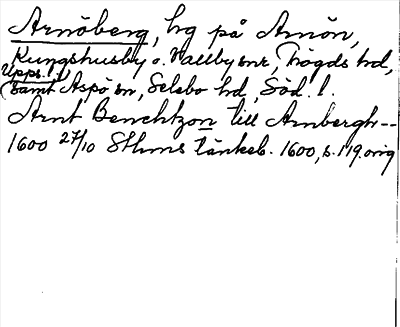 Arnöberg, hg på Arnön,
Kungshusby o. Vallby snr, Trögds hd,
Upps. l.,
(samt Aspö sn, Selebo hd, Söd. l.
Arnt Benchtzon till Arnbergh --
1600 27/10 Sthms tänkeb. 1600, s. 119. orig